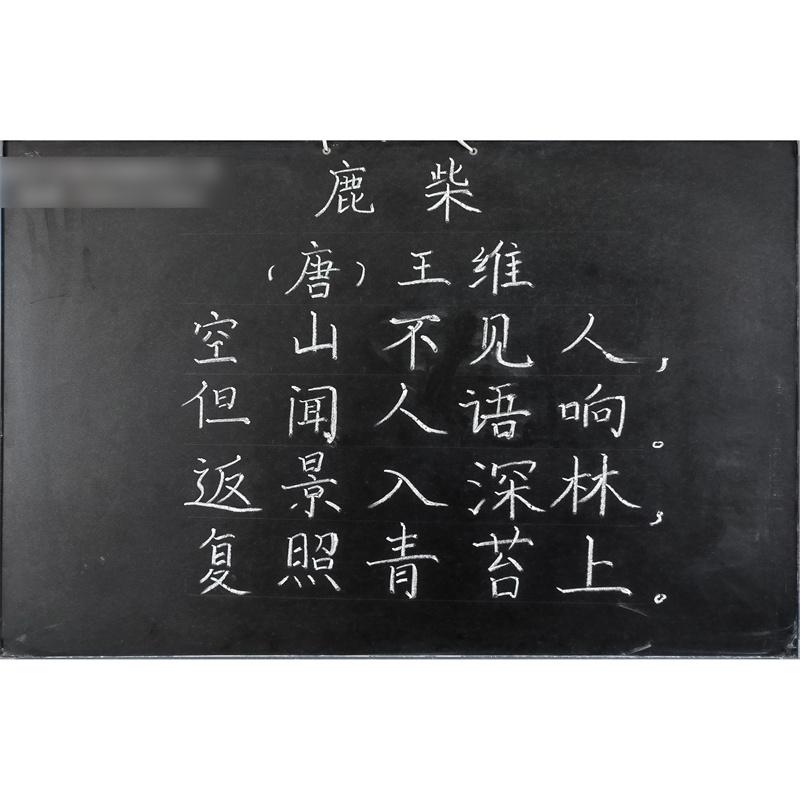 鹿柴
（唐）王维
空山不见人，
但闻人语响。
返景入深林，
复照青苔上。